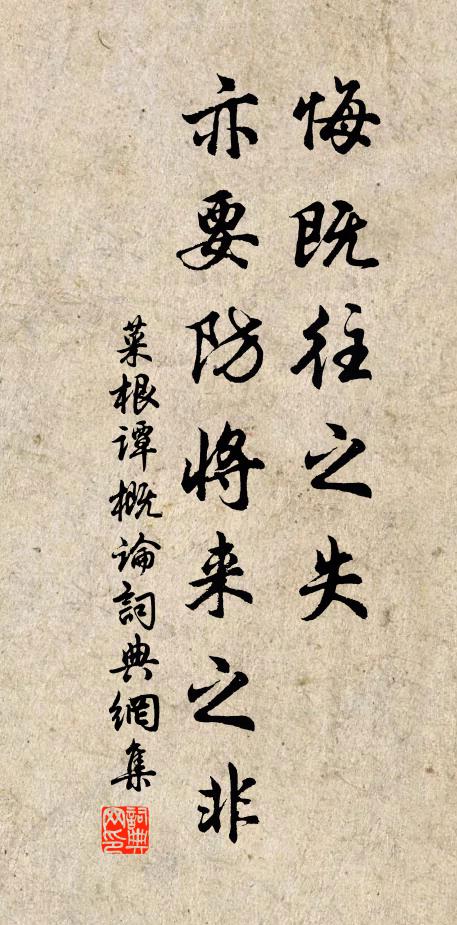 悔既往之失
亦要防将来之非
菜根谭概论詞典網集
詞典网印